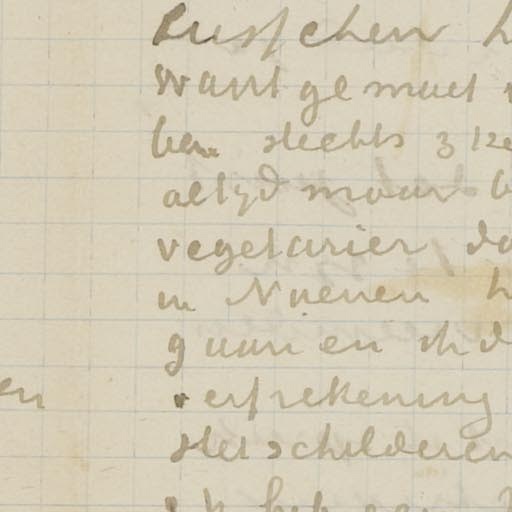 tusschen h
want ge moet
ben slechts 3 ke
altyd maar b
vegetarier da
in Nuenen h
gaan en ik d
en
erfrekening
Het schilderen
ik heb een